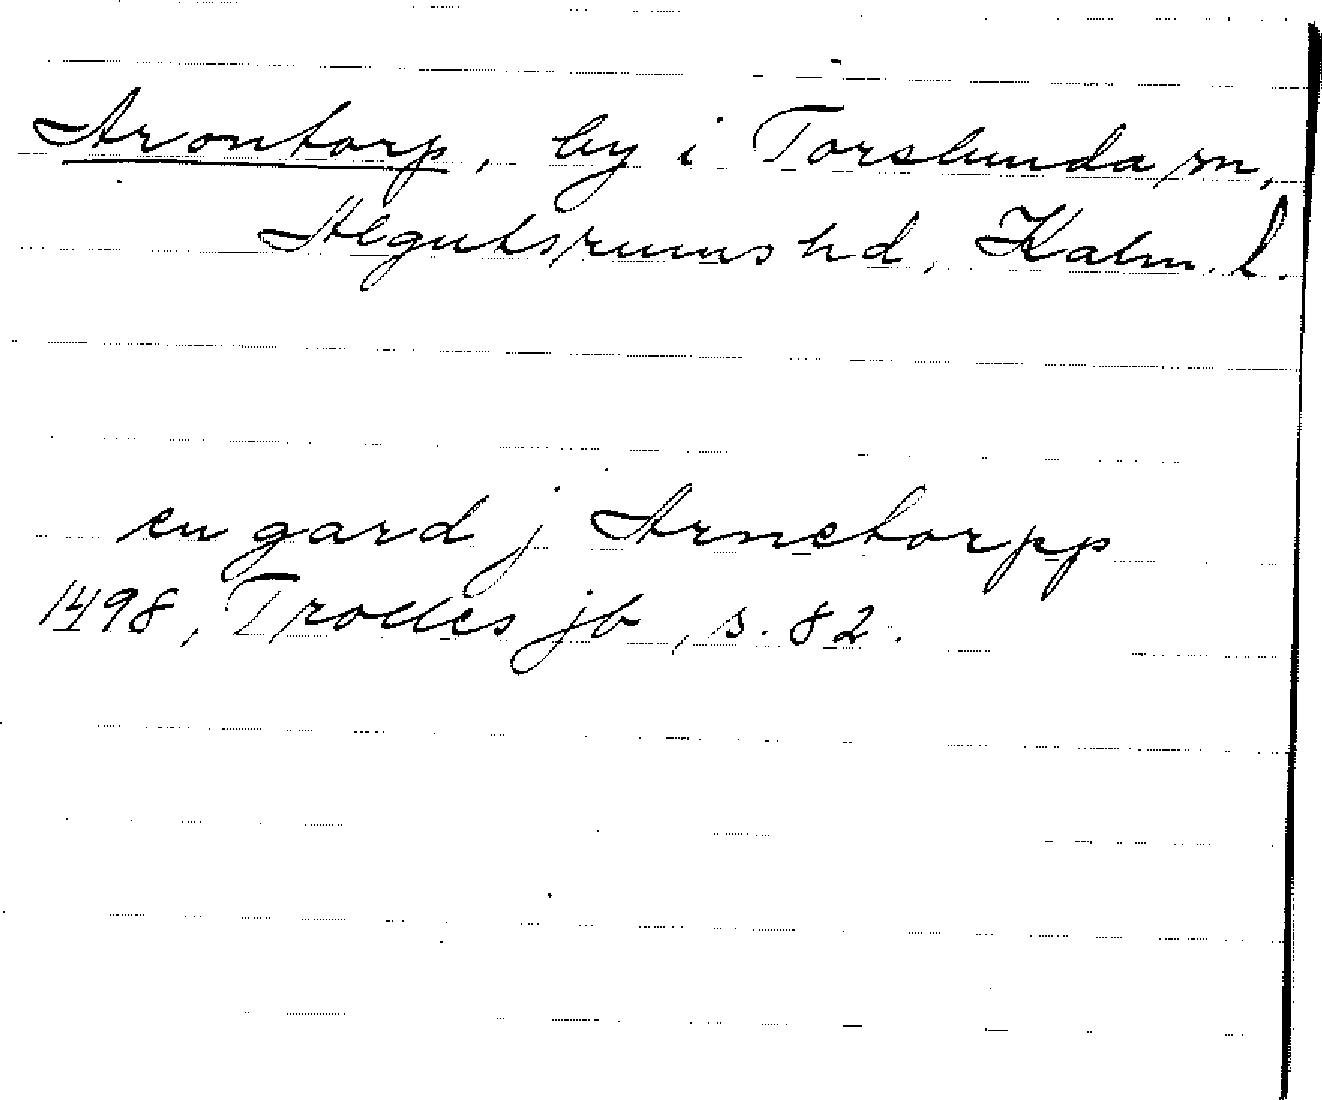 Arontorp, by i Torslunda sn,
Algutsrums hd, Kalm. l.
en gard j Arnetorpp
1498, Trolles jb, s. 82.